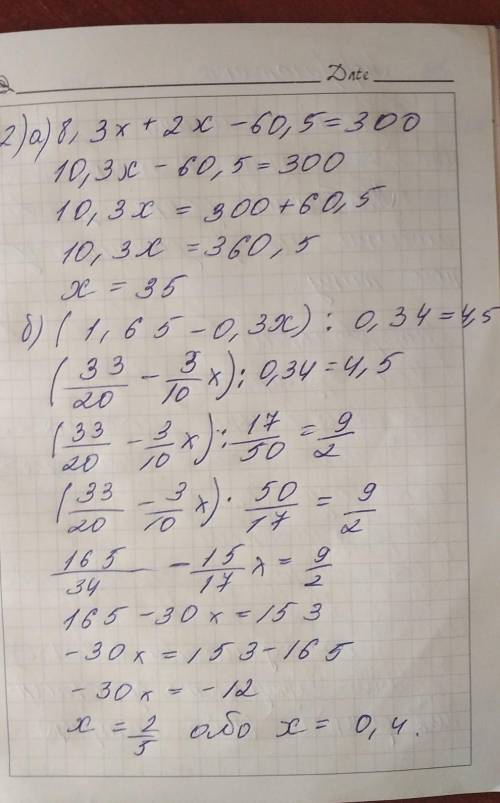 Date
2) а) 8,3x + 2x - 60,5 = 300
10,3x - 60,5 = 300
10,3x = 300 + 60,5
10,3x = 360,5
x = 35
б) (1,65 - 0,3x) : 0,34 = 4,5
(33/20 - 3/10 x) : 0,34 = 4,5
(33/20 - 3/10 x) : 17/50 = 9/2
(33/20 - 3/10 x) · 50/17 = 9/2
165/34 - 15/17 x = 9/2
165 - 30x = 153
-30x = 153 - 165
-30x = -12
x = 2/5 або x = 0,4.